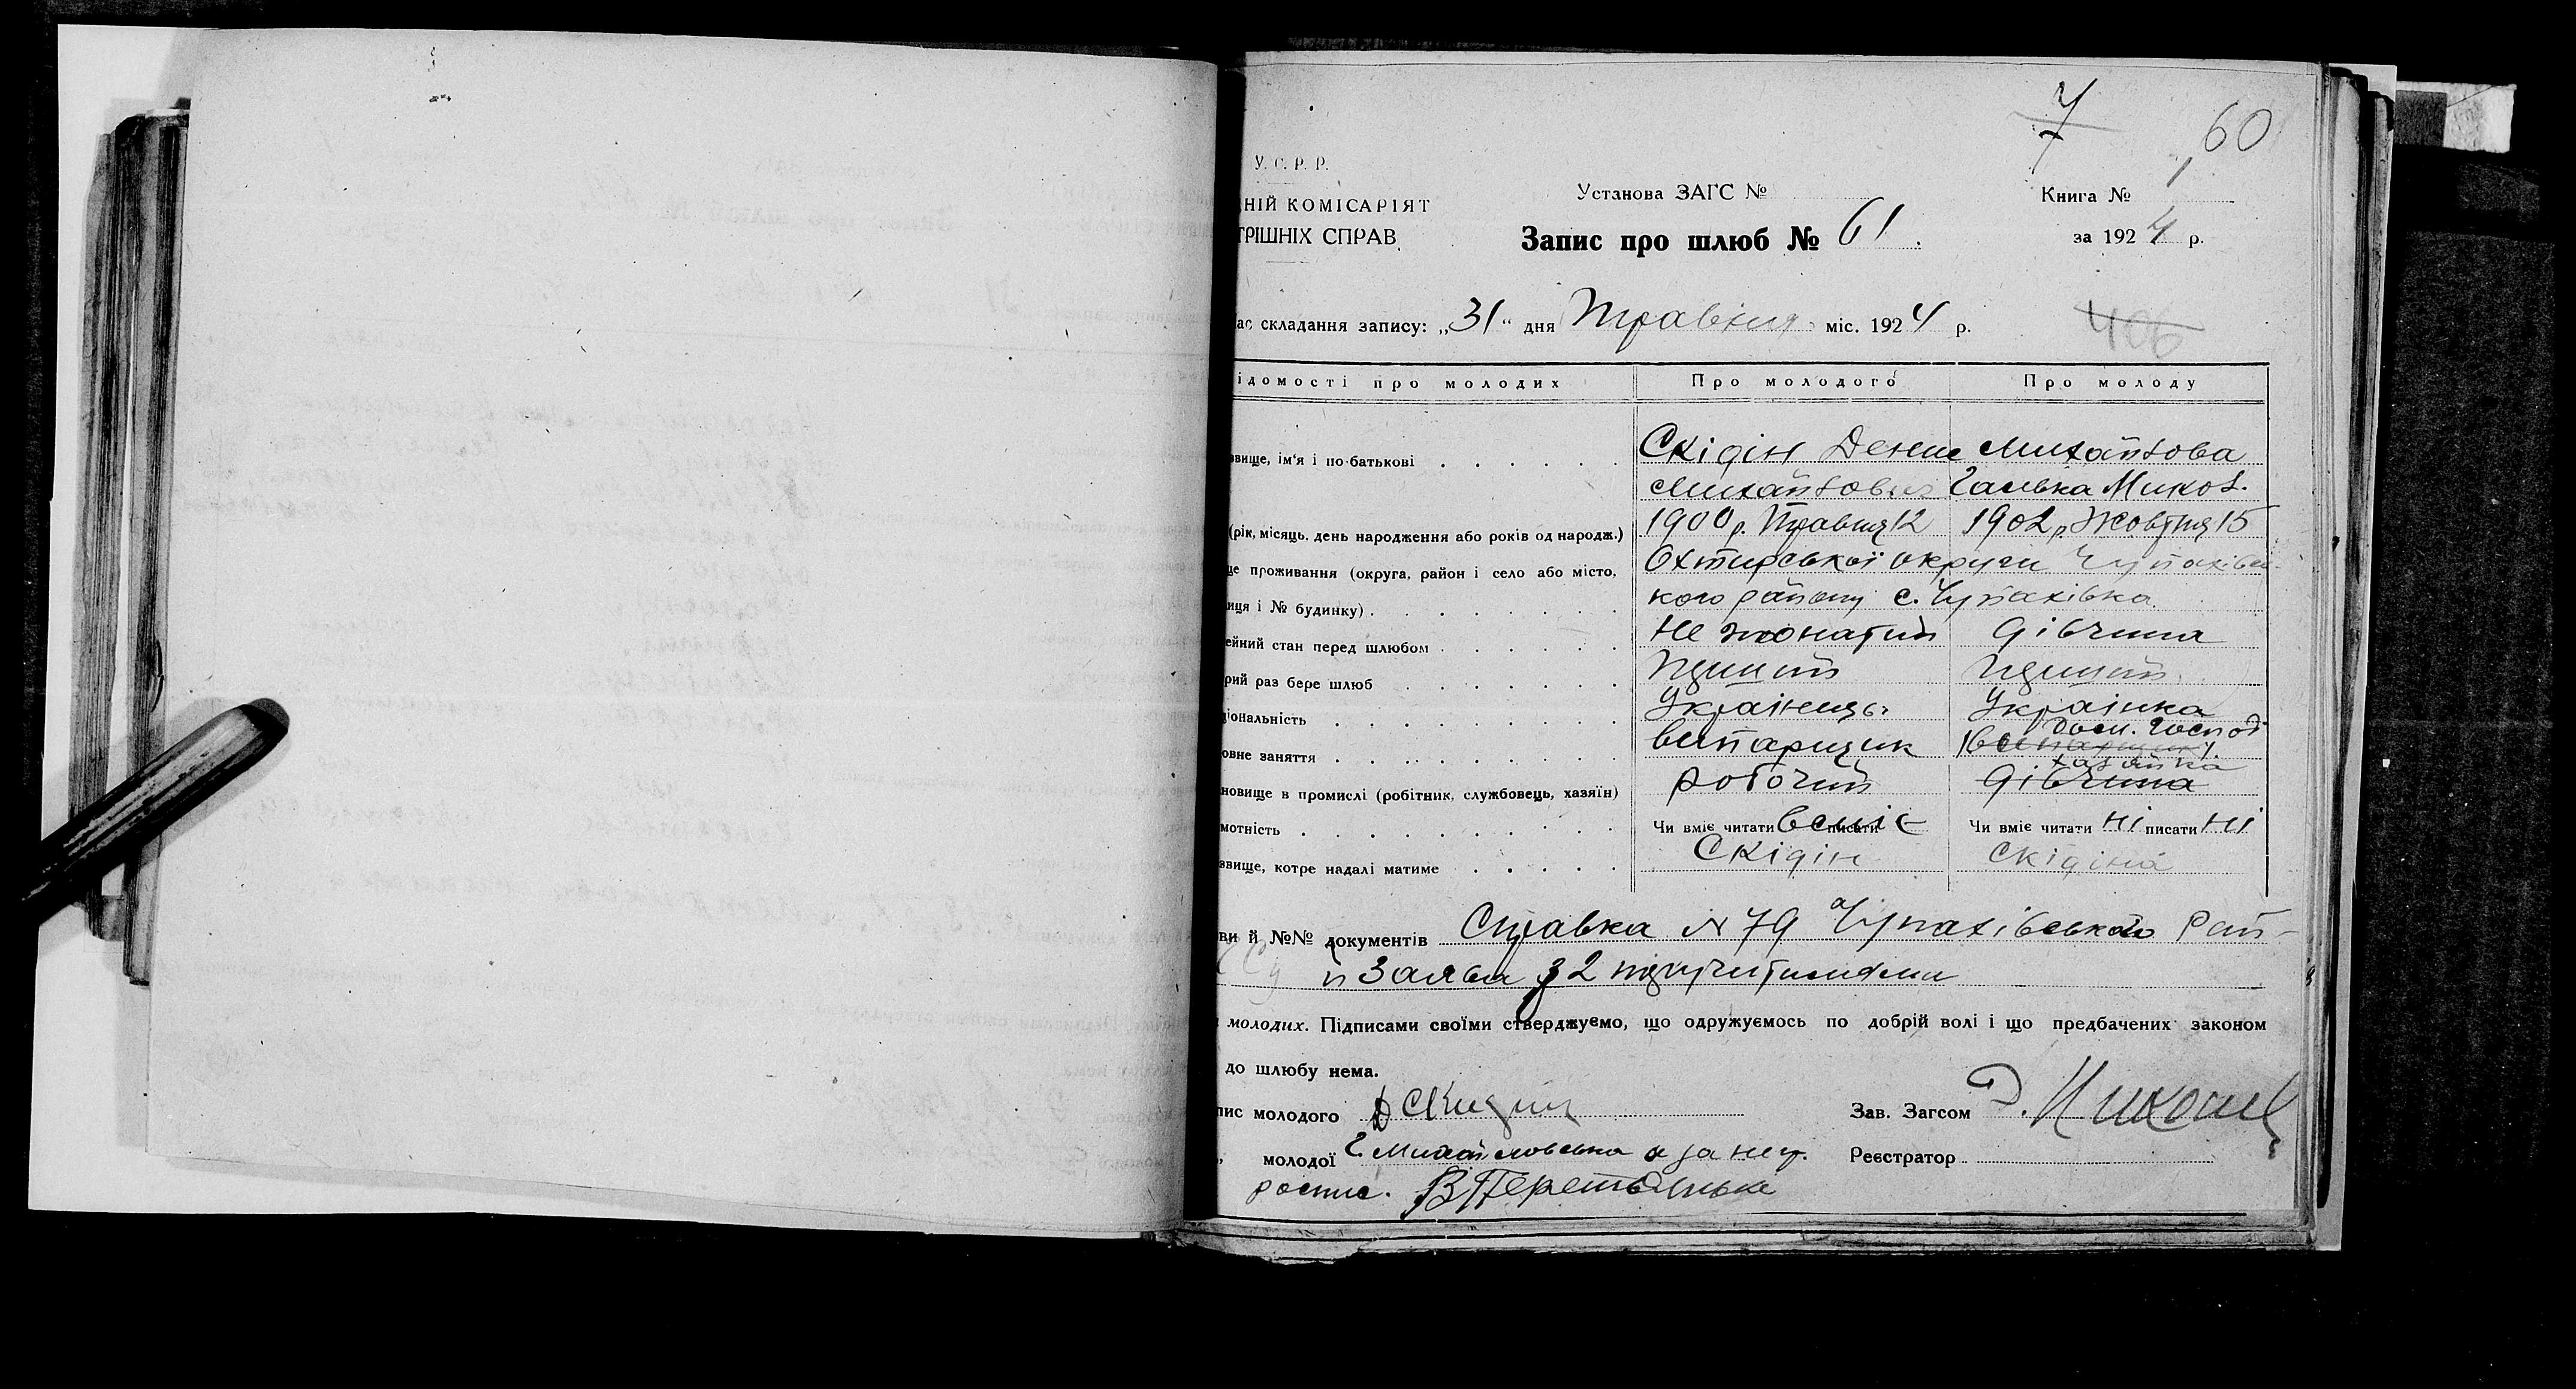 7
60
У. С. Р. Р.
Установа ЗАГС №
Книга № 1
НІЙ КОМІСАРІЯТ
ТРІШНІХ СПРАВ.
Запис про шлюб № 61.
за 1924 р.
час складання запису: „31“ дня Травня міс. 1924 р.
406
ідомості про молодих Про молодого Про молоду
звище, ім'я і по-батькові Скідін Денис Михайлова
Михайлович Галька Микол.
(рік, місяць, день народження або років од народж.) 1900 р. Травня 12 1902 р. Жовтня 15
це проживання (округа, район і село або місто, Охтирської округи Чупахівсь-
иця і № будинку) кого району с. Чупахівка
ейний стан перед шлюбом Не жонатий дівчина
рий раз бере шлюб перший перший
ціональність Українець Українка
Дом. господ.
овне заняття випарщик випарщик
хазяйка
новище в промислі (робітник, службовець, хазяїн) робочий дівчина
мотність Чи вміє читати вміє писати Чи вміє читати ні писати ні
звище, котре надалі матиме Скідін Скідіна
ви й №№ документів Справка № 79 Чупахівського Рай-
й Заява з 2 поручителями
молодих. Підписами своїми стверджуємо, що одружуємось по добрій волі і що предбачених законом
до шлюбу нема.
пис молодого Д Скидин Зав. Загсом
„ молодої Г. Михайловська а за неї Реєстратор
роспис.